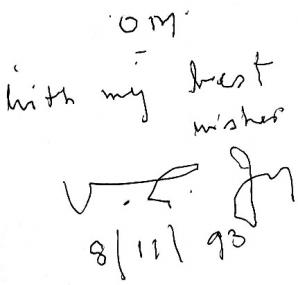 'OM'
with my best
wishes
8/11/93